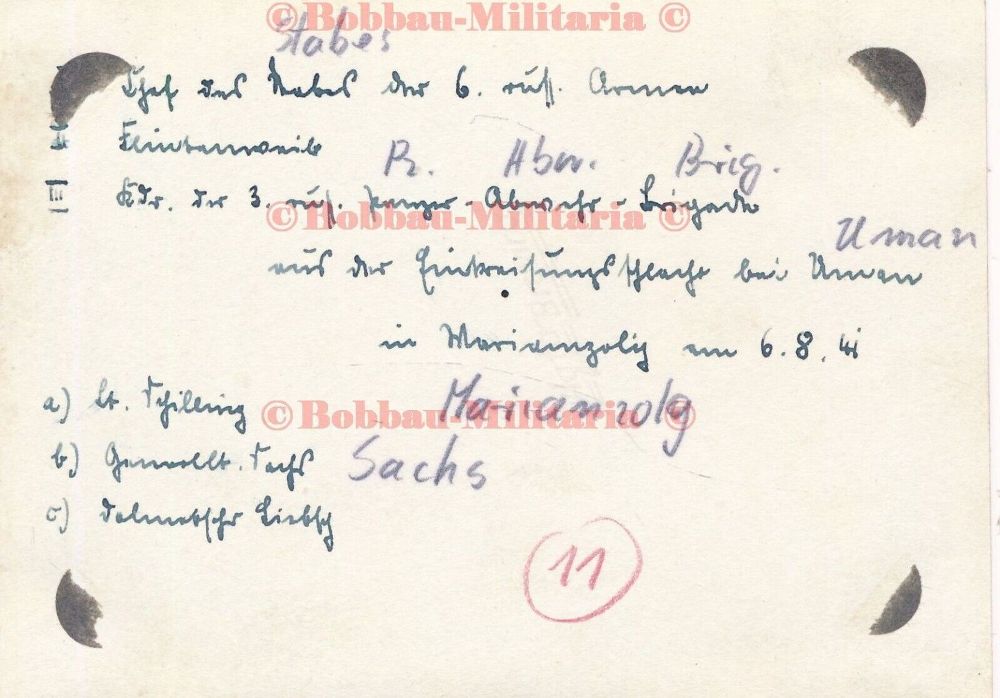 © Bobbau-Militaria ©
Stabes
I Chef des Stabes der 6. russ. Armee
II Flintenweib
Pz. Abw. Brig.
III Kdr. der 3. russ. Panzer-Abwehr-Brigade
© Bobbau-Militaria ©
Uman
aus der Einkreisungsschlacht bei Uman
in Mariamzolig am 6.8.41
a) Lt. Schilling
© Bobbau-Militaria ©
Marianzolg
b) Generallt. Sachs
Sachs
c) Dolmetscher Liebsch
11